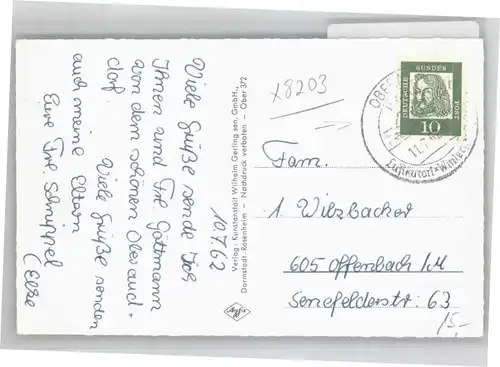 Viele Grüße sende Ich
Ihnen und Frl Göttmann
von dem schönen Oberaud-
dorf. Viele Grüße senden
auch meine Eltern
Eure Frl Schnippel
(Elke
10.7.62
Verlag: Kunstanstalt Wilhelm Gerling sen. GmbH.,
Darmstadt - Rosenheim - Nachdruck verboten - Ober 372
Agfa
x8203
DEUTSCHE
BUNDES
POST
10
OBE
11.7.6
Luftkurort + Winter
Fam.
1 Witzbacher
605 Offenbach /M
Senefelderstr. 63
15,-